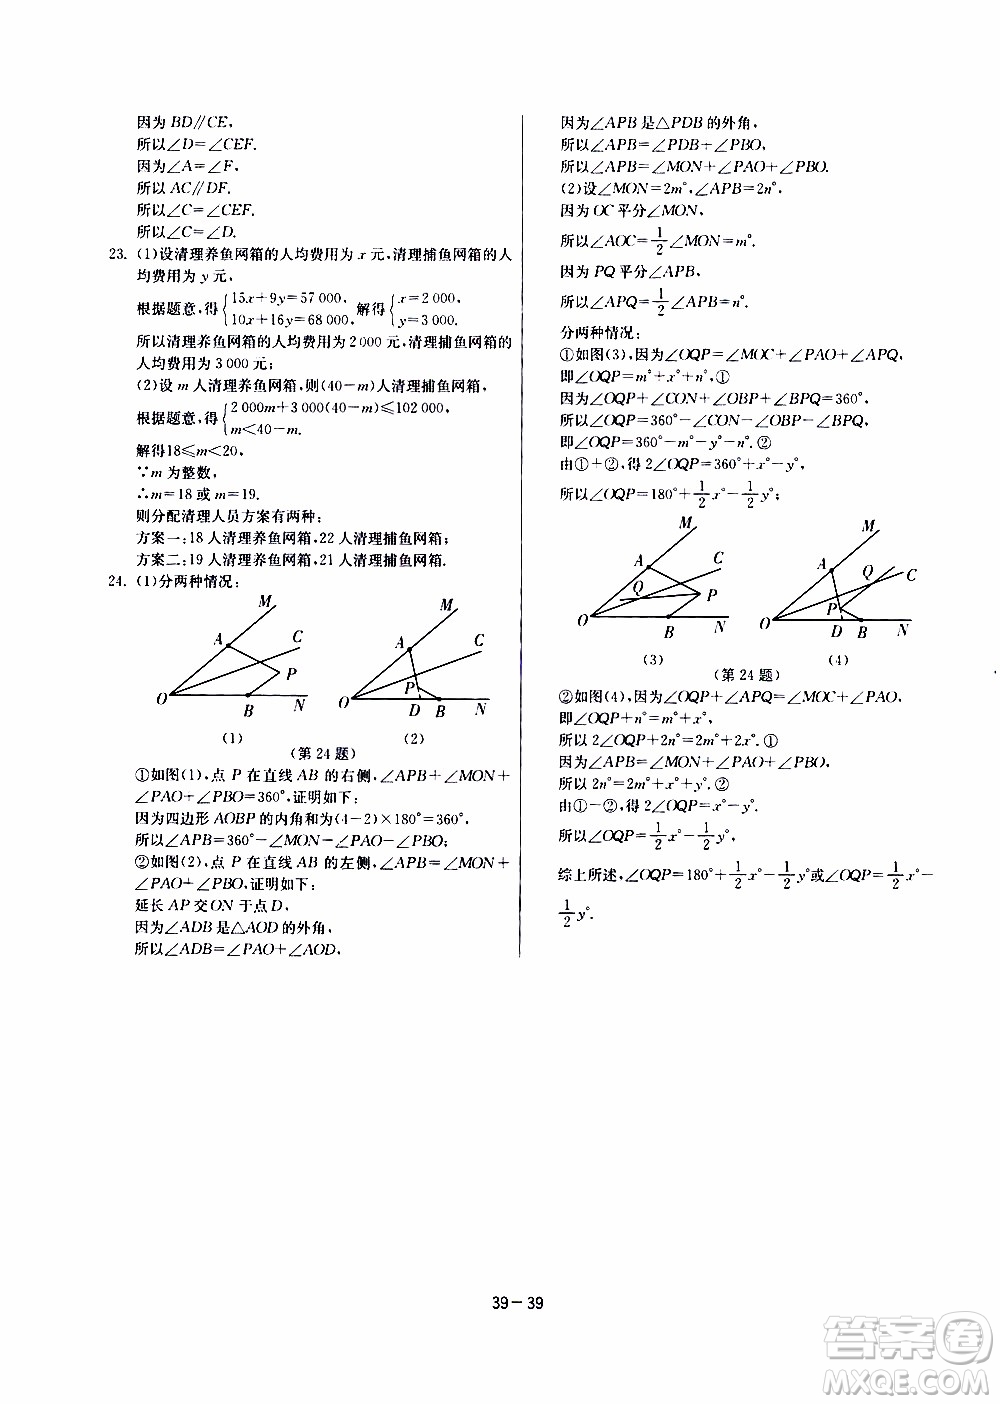 因为∠BD∥CE,
所以∠D=∠CEF.
因为∠A=∠F,
所以AC∥DF.
所以∠C=∠CEF.
所以∠C=∠D.
23. (1)设清理养鱼网箱的人均费用为 x 元,清理捕鱼网箱的人
均费用为 y 元,
根据题意,得{15x+9y=57 000, 10x+16y=68 000, 解得{x=2 000, y=3 000.
所以清理养鱼网箱的人均费用为 2 000 元,清理捕鱼网箱的
人均费用为 3 000 元;
(2)设 m 人清理养鱼网箱,则(40-m)人清理捕鱼网箱,
根据题意,得{2 000m+3 000(40-m)≤102 000, m<40-m.
解得18≤m<20,
∵m 为整数,
∴m=18 或 m=19.
则分配清理人员方案有两种:
方案一:18 人清理养鱼网箱,22 人清理捕鱼网箱;
方案二:19 人清理养鱼网箱,21 人清理捕鱼网箱.
24. (1)分两种情况:
M
A
C
P
O
B
N
(1)
M
A
C
P
O
D
B
N
(2)
(第 24 题)
①如图(1),点 P 在直线 AB 的右侧,∠APB+∠MON+
∠PAO+∠PBO=360°,证明如下:
因为四边形 AOBP 的内角和为(4-2)×180°=360°,
所以∠APB=360°-∠MON-∠PAO-∠PBO;
②如图(2),点 P 在直线 AB 的左侧,∠APB=∠MON+
∠PAO+∠PBO,证明如下:
延长 AP 交 ON 于点 D,
因为∠ADB 是△AOD 的外角,
所以∠ADB=∠PAO+∠AOD,
因为∠APB 是△PDB 的外角,
所以∠APB=∠PDB+∠PBO,
所以∠APB=∠MON+∠PAO+∠PBO.
(2)设∠MON=2m°,∠APB=2n°,
因为 OC 平分∠MON,
所以∠AOC=1/2∠MON=m°.
因为 PQ 平分∠APB,
所以∠APQ=1/2∠APB=n°.
分两种情况:
①如图(3),因为∠OQP=∠MOC+∠PAO+∠APQ,
即∠OQP=m°+x°+n°,①
因为∠OQP+∠CON+∠OBP+∠BPQ=360°,
所以∠OQP=360°-∠CON-∠OBP-∠BPQ,
即∠OQP=360°-m°-y°-n°.②
由①+②,得 2∠OQP=360°+x°-y°,
所以∠OQP=180°+1/2x°-1/2y°;
M
A
C
Q
P
O
B
N
(3)
M
A
Q
C
P
O
D
B
N
(4)
(第 24 题)
②如图(4),因为∠OQP+∠APQ=∠MOC+∠PAO,
即∠OQP+n°=m°+x°,
所以 2∠OQP+2n°=2m°+2x°.①
因为∠APB=∠MON+∠PAO+∠PBO,
所以 2n°=2m°+x°+y°.②
由①-②,得 2∠OQP=x°-y°,
所以∠OQP=1/2x°-1/2y°,
综上所述,∠OQP=180°+1/2x°-1/2y°或∠OQP=1/2x°-
1/2y°.
39-39
答案圈
MXQE.COM